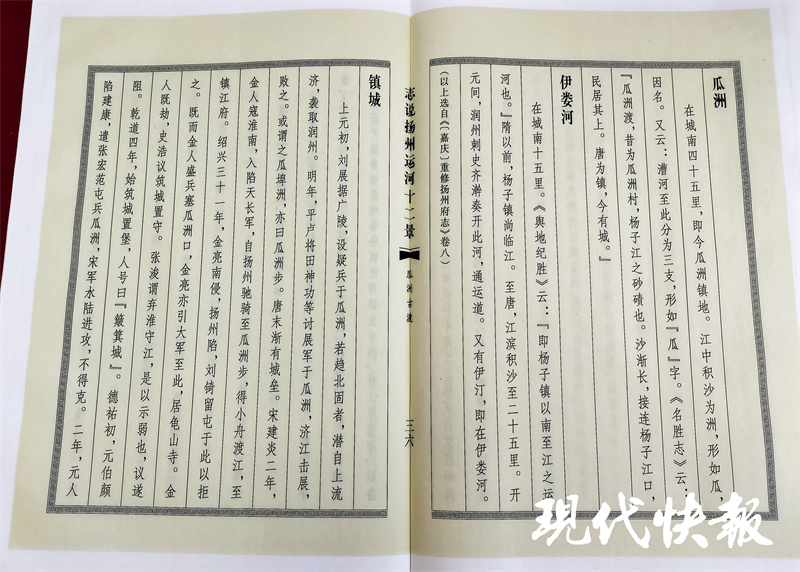 瓜洲
在城南四十五里，即今瓜洲镇地。江中积沙为洲，形如瓜，
因名。又云：漕河至此分为三支，形如『瓜』字。《名胜志》云：
『瓜洲渡，昔为瓜洲村，杨子江之砂碛也。沙渐长，接连杨子江口，
民居其上。唐为镇，今有城。』
伊娄河
在城南十五里。《舆地纪胜》云：『即杨子镇以南至江之运
河也。』隋以前，杨子镇尚临江。至唐，江滨积沙至二十五里。开
元间，润州刺史齐澣奏开此河，通运道。又有伊汀，即在伊娄河。
（以上选自《〔嘉庆〕重修扬州府志》卷八）
志说扬州运河十二景
瓜洲古渡
三六
镇城
上元初，刘展据广陵，设疑兵于瓜洲，若趋北固者，潜自上流
济，袭取润州。明年，平卢将田神功等讨展军于瓜洲，济江击展，
败之。或谓之瓜埠洲，亦曰瓜洲步。唐末渐有城垒。宋建炎二年，
金人寇淮南，入陷天长军，自扬州驰骑至瓜洲步，得小舟渡江，至
镇江府。绍兴三十一年，金亮南侵，扬州陷，刘锜留屯于此以拒
之。既而金人盛兵塞瓜洲口，金亮亦引大军至此，居龟山寺。金
人既劫，史浩议筑城置守。张浚谓弃淮守江，是以示弱也，议遂
阻。乾道四年，始筑城置堡，人号曰『簸箕城』。德祐初，元伯颜
陷建康，遣张宏范屯兵瓜洲，宋军水陆进攻，不得克。二年，元人
现代快报